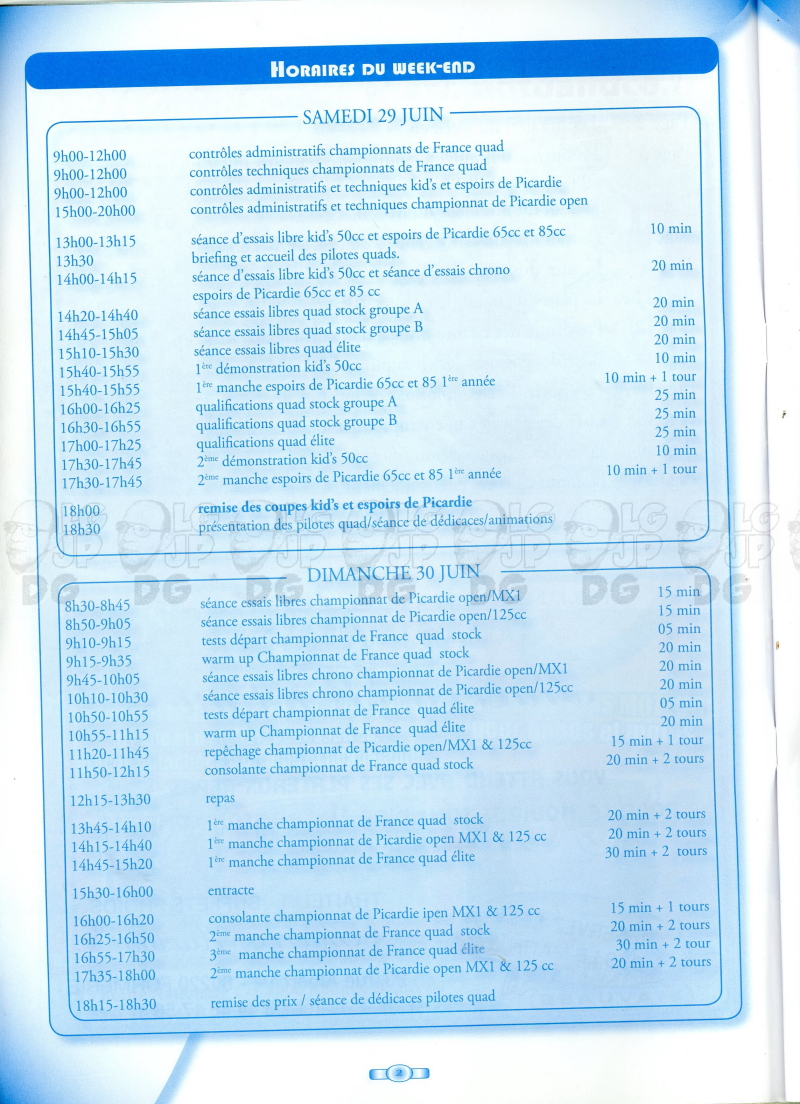 HORAIRES DU WEEK-END
SAMEDI 29 JUIN
9h00-12h00 contrôles administratifs championnats de France quad
9h00-12h00 contrôles techniques championnats de France quad
9h00-12h00 contrôles administratifs et techniques kid's et espoirs de Picardie
15h00-20h00 contrôles administratifs et techniques championnat de Picardie open
13h00-13h15 séance d'essais libre kid's 50cc et espoirs de Picardie 65cc et 85cc 10 min
13h30 briefing et accueil des pilotes quads.
14h00-14h15 séance d'essais libre kid's 50cc et séance d'essais chrono 20 min
espoirs de Picardie 65cc et 85 cc
14h20-14h40 séance essais libres quad stock groupe A 20 min
14h45-15h05 séance essais libres quad stock groupe B 20 min
15h10-15h30 séance essais libres quad élite 20 min
15h40-15h55 1ère démonstration kid's 50cc 10 min
15h40-15h55 1ère manche espoirs de Picardie 65cc et 85 1ère année 10 min + 1 tour
16h00-16h25 qualifications quad stock groupe A 25 min
16h30-16h55 qualifications quad stock groupe B 25 min
17h00-17h25 qualifications quad élite 25 min
17h30-17h45 2ème démonstration kid's 50cc 10 min
17h30-17h45 2ème manche espoirs de Picardie 65cc et 85 1ère année 10 min + 1 tour
18h00 remise des coupes kid's et espoirs de Picardie
18h30 présentation des pilotes quad/séance de dédicaces/animations
LG JP DG LG JP DG LG JP DG LG JP DG LG JP DG LG JP DG LG JP DG
DIMANCHE 30 JUIN
8h30-8h45 séance essais libres championnat de Picardie open/MX1 15 min
8h50-9h05 séance essais libres championnat de Picardie open/125cc 15 min
9h10-9h15 tests départ championnat de France quad stock 05 min
9h15-9h35 warm up Championnat de France quad stock 20 min
9h45-10h05 séance essais libres chrono championnat de Picardie open/MX1 20 min
10h10-10h30 séance essais libres chrono championnat de Picardie open/125cc 20 min
10h50-10h55 tests départ championnat de France quad élite 05 min
10h55-11h15 warm up Championnat de France quad élite 20 min
11h20-11h45 repêchage championnat de Picardie open/MX1 & 125cc 15 min + 1 tour
11h50-12h15 consolante championnat de France quad stock 20 min + 2 tours
12h15-13h30 repas
13h45-14h10 1ère manche championnat de France quad stock 20 min + 2 tours
14h15-14h40 1ère manche championnat de Picardie open MX1 & 125 cc 20 min + 2 tours
14h45-15h20 1ère manche championnat de France quad élite 30 min + 2 tours
15h30-16h00 entracte
16h00-16h20 consolante championnat de Picardie ipen MX1 & 125 cc 15 min + 1 tours
16h25-16h50 2ème manche championnat de France quad stock 20 min + 2 tours
16h55-17h30 3ème manche championnat de France quad élite 30 min + 2 tour
17h35-18h00 2ème manche championnat de Picardie open MX1 & 125 cc 20 min + 2 tours
18h15-18h30 remise des prix / séance de dédicaces pilotes quad
2